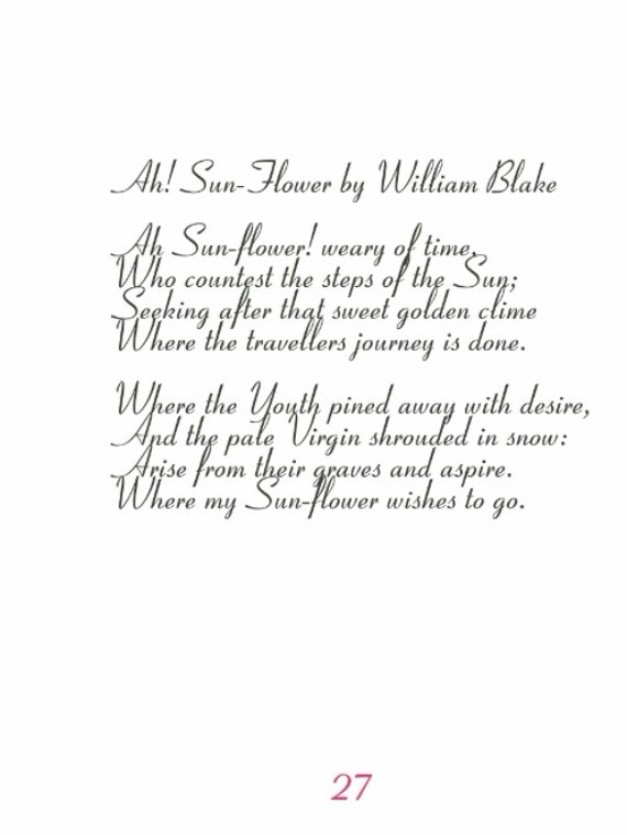 Ah! Sun-Flower by William Blake
Ah Sun-flower! weary of time,
Who countest the steps of the Sun;
Seeking after that sweet golden clime
Where the travellers journey is done.
Where the Youth pined away with desire,
And the pale Virgin shrouded in snow:
Arise from their graves and aspire.
Where my Sun-flower wishes to go.
27